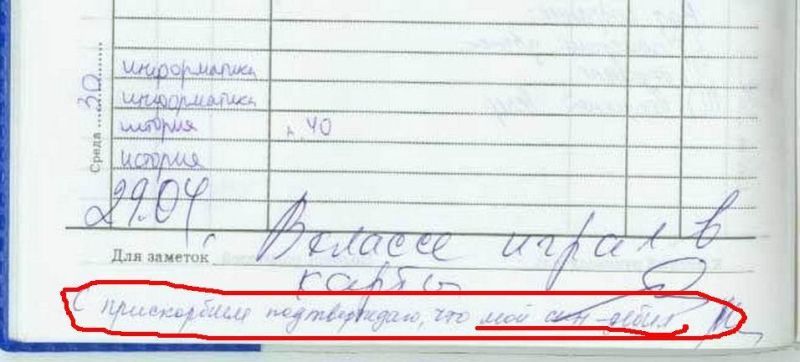 информатика
информатика
история
п. 40
история
Среда 30
29.04
Для заметок В классе играл в
карты
С прискорбием подтверждаю, что мой сын-дебил